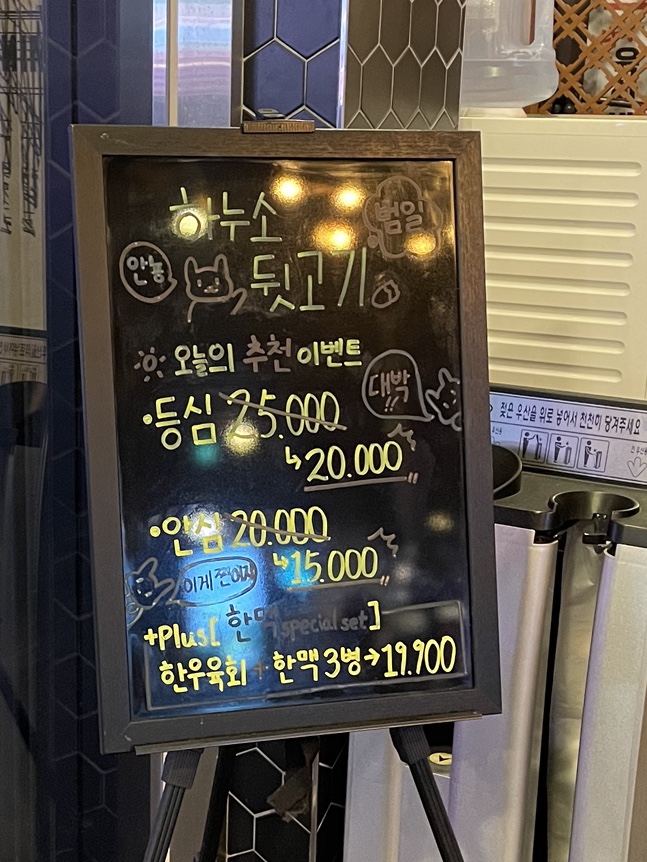 하누소
범일
안농
뒷고기
오늘의 추천 이벤트
대박!!
등심 25.000
↳20.000
안심 20.000
↳15.000
+Plus[ 한맥 special set]
한우육회 + 한맥 3병→19.900
젖은 우산을 위로 넣어서 천천히 당겨주세요